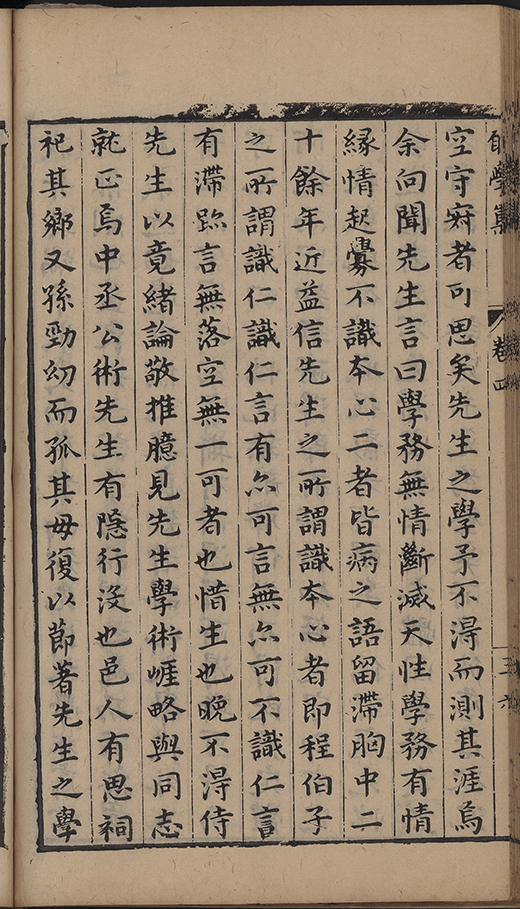 學集 卷四
空守寂者可思矣先生之學予不得而測其涯焉
余向聞先生言曰學務無情斷滅天性學務有情
緣情起釁不識本心二者皆病之語留滯胸中二
十餘年近益信先生之所謂識本心者即程伯子
之所謂識仁識仁言有亦可言無亦可不識仁言
有滯跡言無落空無一可者也惜生也晚不得侍
先生以竟緒論敬推臆見先生學術崖略與同志
就正焉中丞公術先生有隱行沒也邑人有思祠
祀其鄉又孫勁幼而孤其母復以節著先生之學